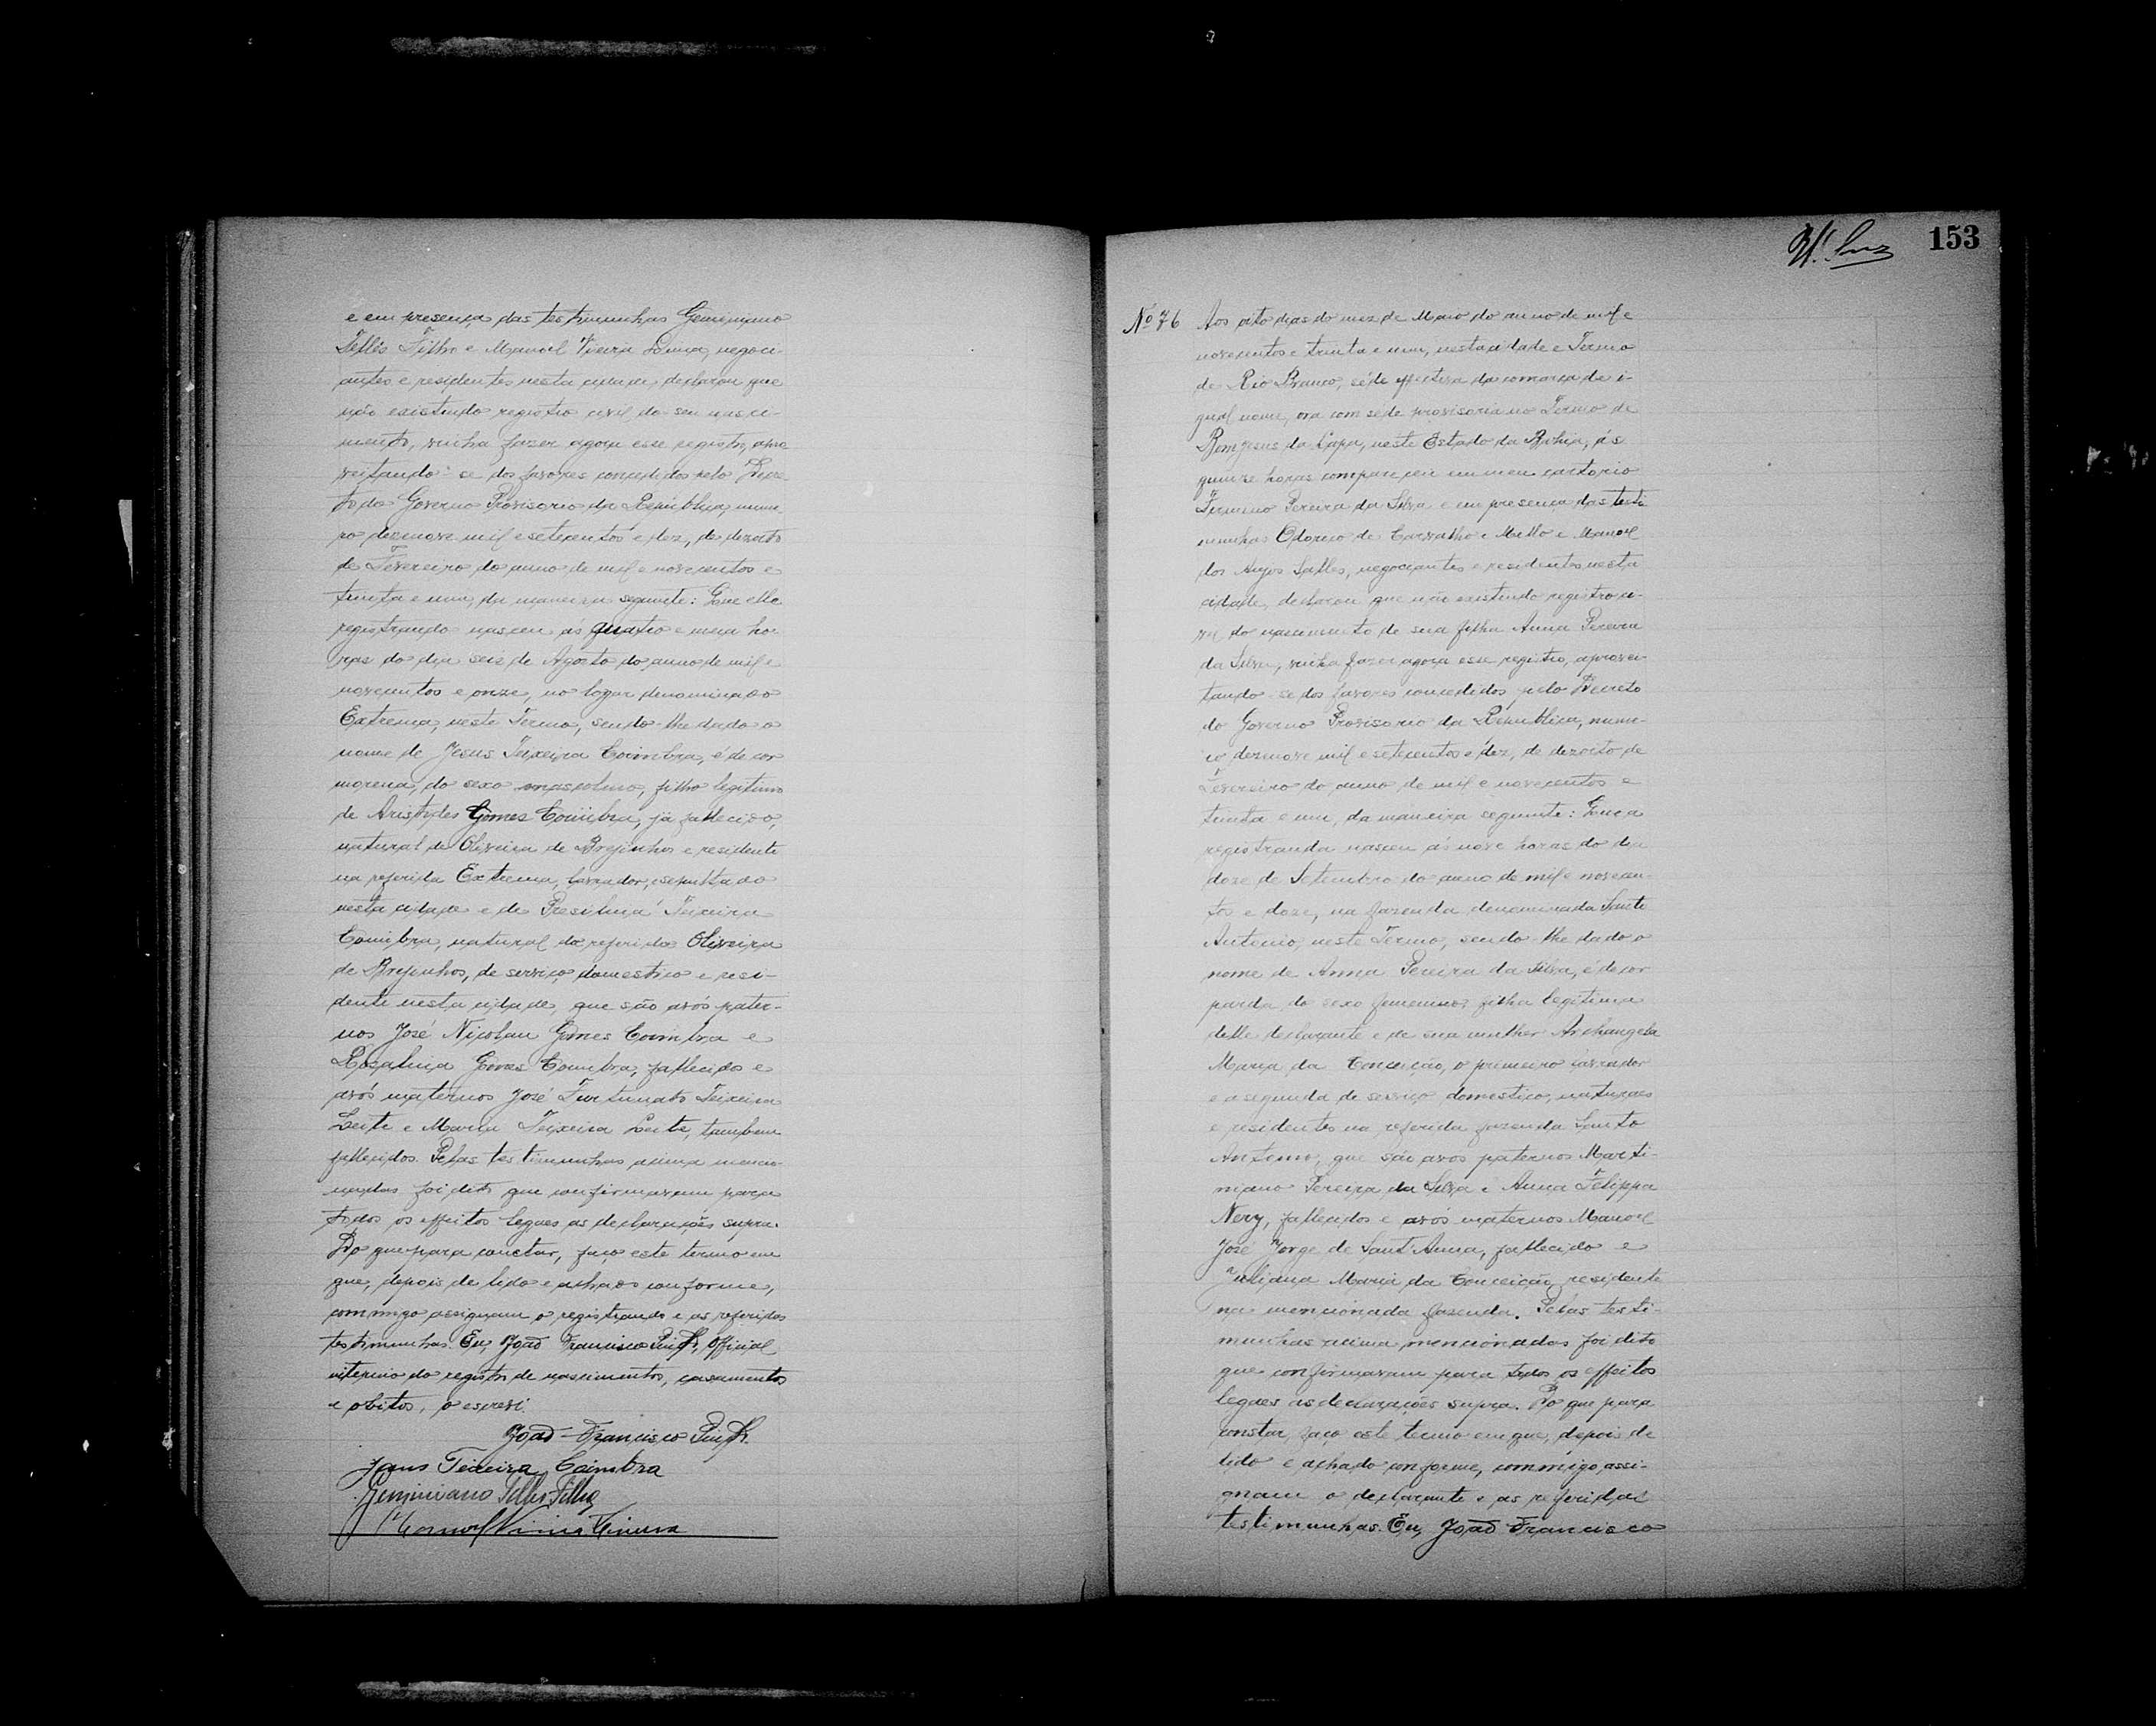 e em presença das testimunhas Geminiano
Telles Filho e Manoel Vieira negoci-
antes e residentes nesta cidade, declarou que
não existindo registro civil do seu nasci-
mento, vinha fazer agora esse registro, apro-
veitando-se dos favores concedidos pelo Decre-
to do Governo Provisorio da Republica, nume-
ro dezenove mil e setecentos e dez, de dezoito
de Fevereiro do anno de mil e novecentos e
trinta e um, da maneira seguinte: Que elle
registrando nasceu ás quatro e meia ho-
ras do dia seis de Agosto do anno de mil e
novecentos e onze, no logar denominado
Extrema, neste Termo, sendo-lhe dado o
nome de Jesus Teixeira Coimbra, é de cor
morena, do sexo masculino, filho legitimo
de Aristides Gomes Coimbra, já fallecido,
natural de Oliveira de Brejinhos e residente
na referida Extrema, lavrador, sepultado
nesta cidade e de Presilina Teixeira
Coimbra, natural do referido Oliveira
de Brejinhos, de serviço domestico e resi-
dente nesta cidade, que são avós pater-
nos José Nicolau Gomes Coimbra e
Rosalina Gomes Coimbra, fallecidos e
avós maternos José Furtunato Teixeira
Leite e Maria Teixeira Leite, tambem
fallecidos. Pelas testimunhas acima mencio-
nadas foi dito que confirmavam para
todos os effeitos legaes as declarações supra.
Do que para constar, faço este termo em
que, depois de lido e achado conforme,
commigo assignam o registrando e as referidas
testimunhas. Eu, João Francisco Official
interino do registro de nascimentos, casamentos
e obitos, o escrevi.
João Francisco
Jesus Teixeira Coimbra
Geminiano Telles Filho
Manoel Vieira
153
Nº 76 Aos oito dias do mez de Maio do anno de mil e
novecentos e trinta e um, nesta cidade e Termo
de Rio Branco, séde effectiva da comarca de i-
gual nome, ora com séde provisoria no Termo de
Bom Jesus da Lapa, neste Estado da Bahia, ás
quinze horas compareceu em meu cartorio
Firmino Pereira da Silva e em presença das testi-
munhas Odorico de Carvalho e Mello e Manoel
dos Anjos Salles, negociantes e residentes nesta
cidade, declarou que não existindo registro ci-
vil do nascimento de sua filha Anna Pereira
da Silva, vinha fazer agora esse registro, aprovei-
tando-se dos favores concedidos pelo Decreto
do Governo Provisorio da Republica, nume-
ro dezenove mil e setecentos e dez, de dezoito de
Fevereiro do anno de mil e novecentos e
trinta e um, da maneira seguinte: Que a
registranda nasceu ás nove horas do dia
doze de Setembro do anno de mil e novecen-
tos e doze, na fazenda denominada Santo
Antonio, neste Termo, sendo-lhe dado o
nome de Anna Pereira da Silva, é de cor
parda, do sexo femenino, filha legitima
delle declarante e de sua mulher Archangela
Maria da Conceição, o primeiro lavrador
e a segunda de serviço domestico, naturaes
e residentes na referida fazenda Santo
Antonio, que são avós paternos Marti-
niano Pereira da Silva e Anna Felippa
Nery, fallecidos e avós maternos Manoel
José Jorge de Sant'Anna, fallecido e
Juliana Maria da Conceição, residente
na mencionada fazenda. Pelas testi-
munhas acima mencionadas foi dito
que confirmavam para todos os effeitos
legaes as declarações supra. Do que para
constar, faço este termo em que, depois de
lido e achado conforme, commigo assi-
gnam o declarante e as referidas
testimunhas. Eu, João Francisco